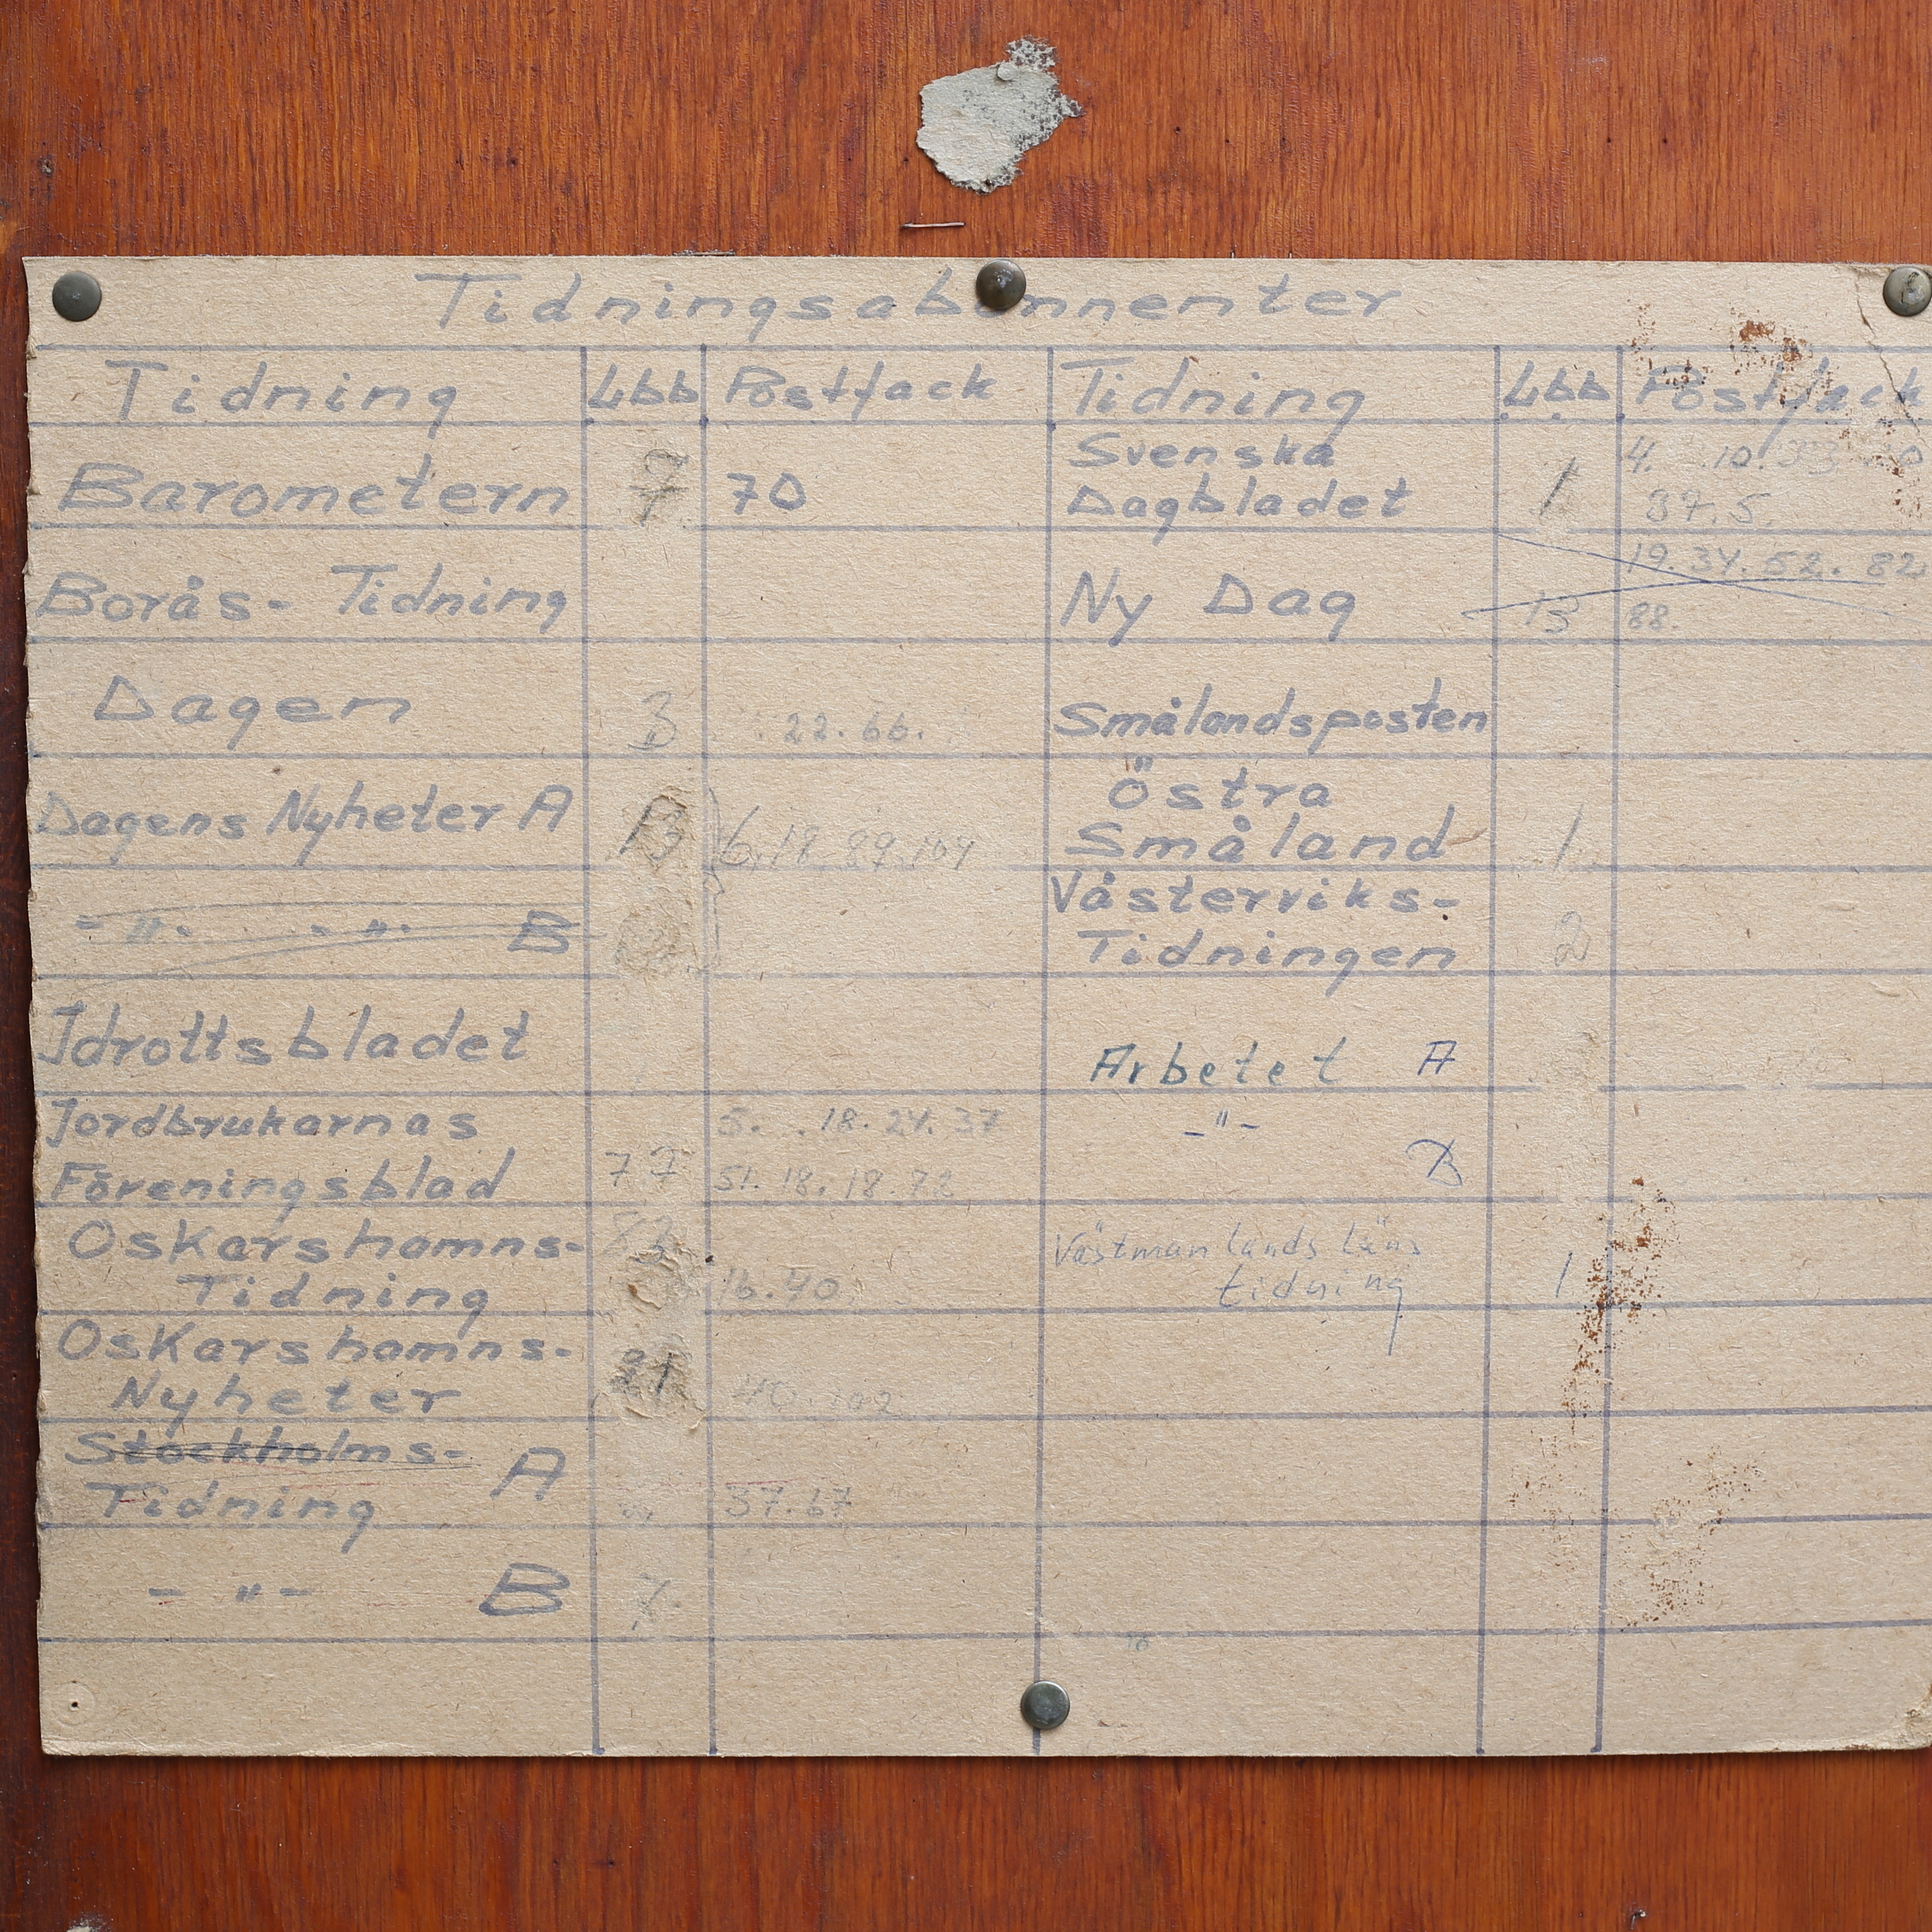 Tidningsabonnenter
Tidning Lbb Postfack Tidning Lbb Postfack
Barometern 7 70
Svenska
Dagbladet 1 37.5.
Borås- Tidning
Ny Dag 13 19. 34. 52. 82
88.
Dagen 3 22. 66.
Smålandsposten
Dagens Nyheter A 13 6. 18 89. 104
Östra
Småland 1
- " - - " - B
Västerviks-
Tidningen 2
Idrottsbladet
Arbetet A
Jordbrukarnas 5. 18. 24. 37
Föreningsblad 77 51. 18. 18. 72
- " -
B
Oskarshamns-
Tidning 16. 40
Västmanlands läns
tidning 1
Oskarshamns-
Nyheter 40. 102
Stockholms- A
Tidning 37. 67
- " - B 7